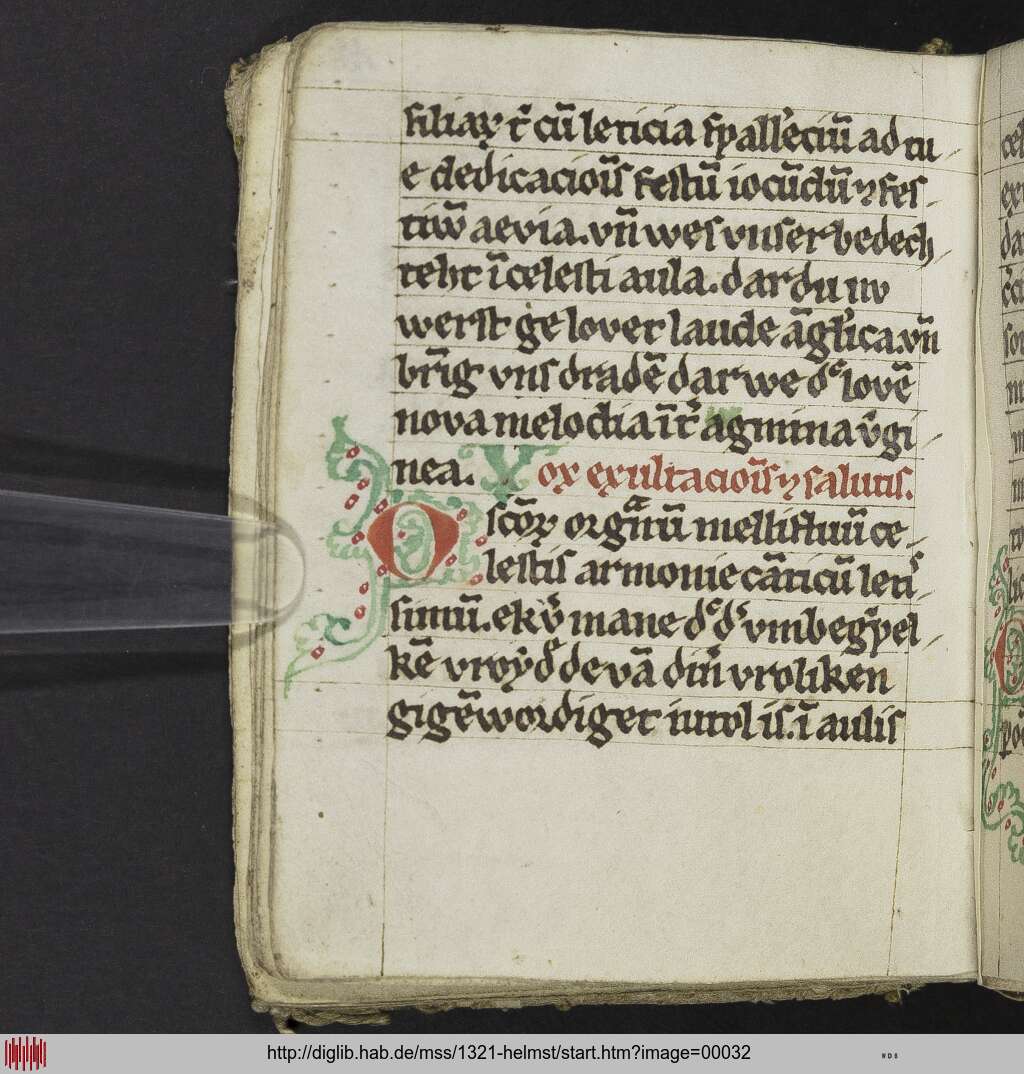 filiaꝝ ⁊ cū leticia spallēciū ad tu
e dedicacioīs festū iocūdū ⁊ fes
tiuū aevia. vn̄ wes vnser bedech
tehc ī celesti aula. dar du nv
werst ge lover laude āgl'ica. vn̄
brīg vns dradē dar we dᵉ lovē
nova melodia īt' agmina v'gi
nea. Vox exultacioīs ⁊ salutis.
O scōꝝ orgᵃnū mellifluū ce
lestis armonie cāticū leti
simū. ek v' mane dᵉ d' vmbegpel
kē vroyd' de vā dīr vroliken
gigēwordiget in tol is. ī aulis
http://diglib.hab.de/mss/1321-helmst/start.htm?image=00032